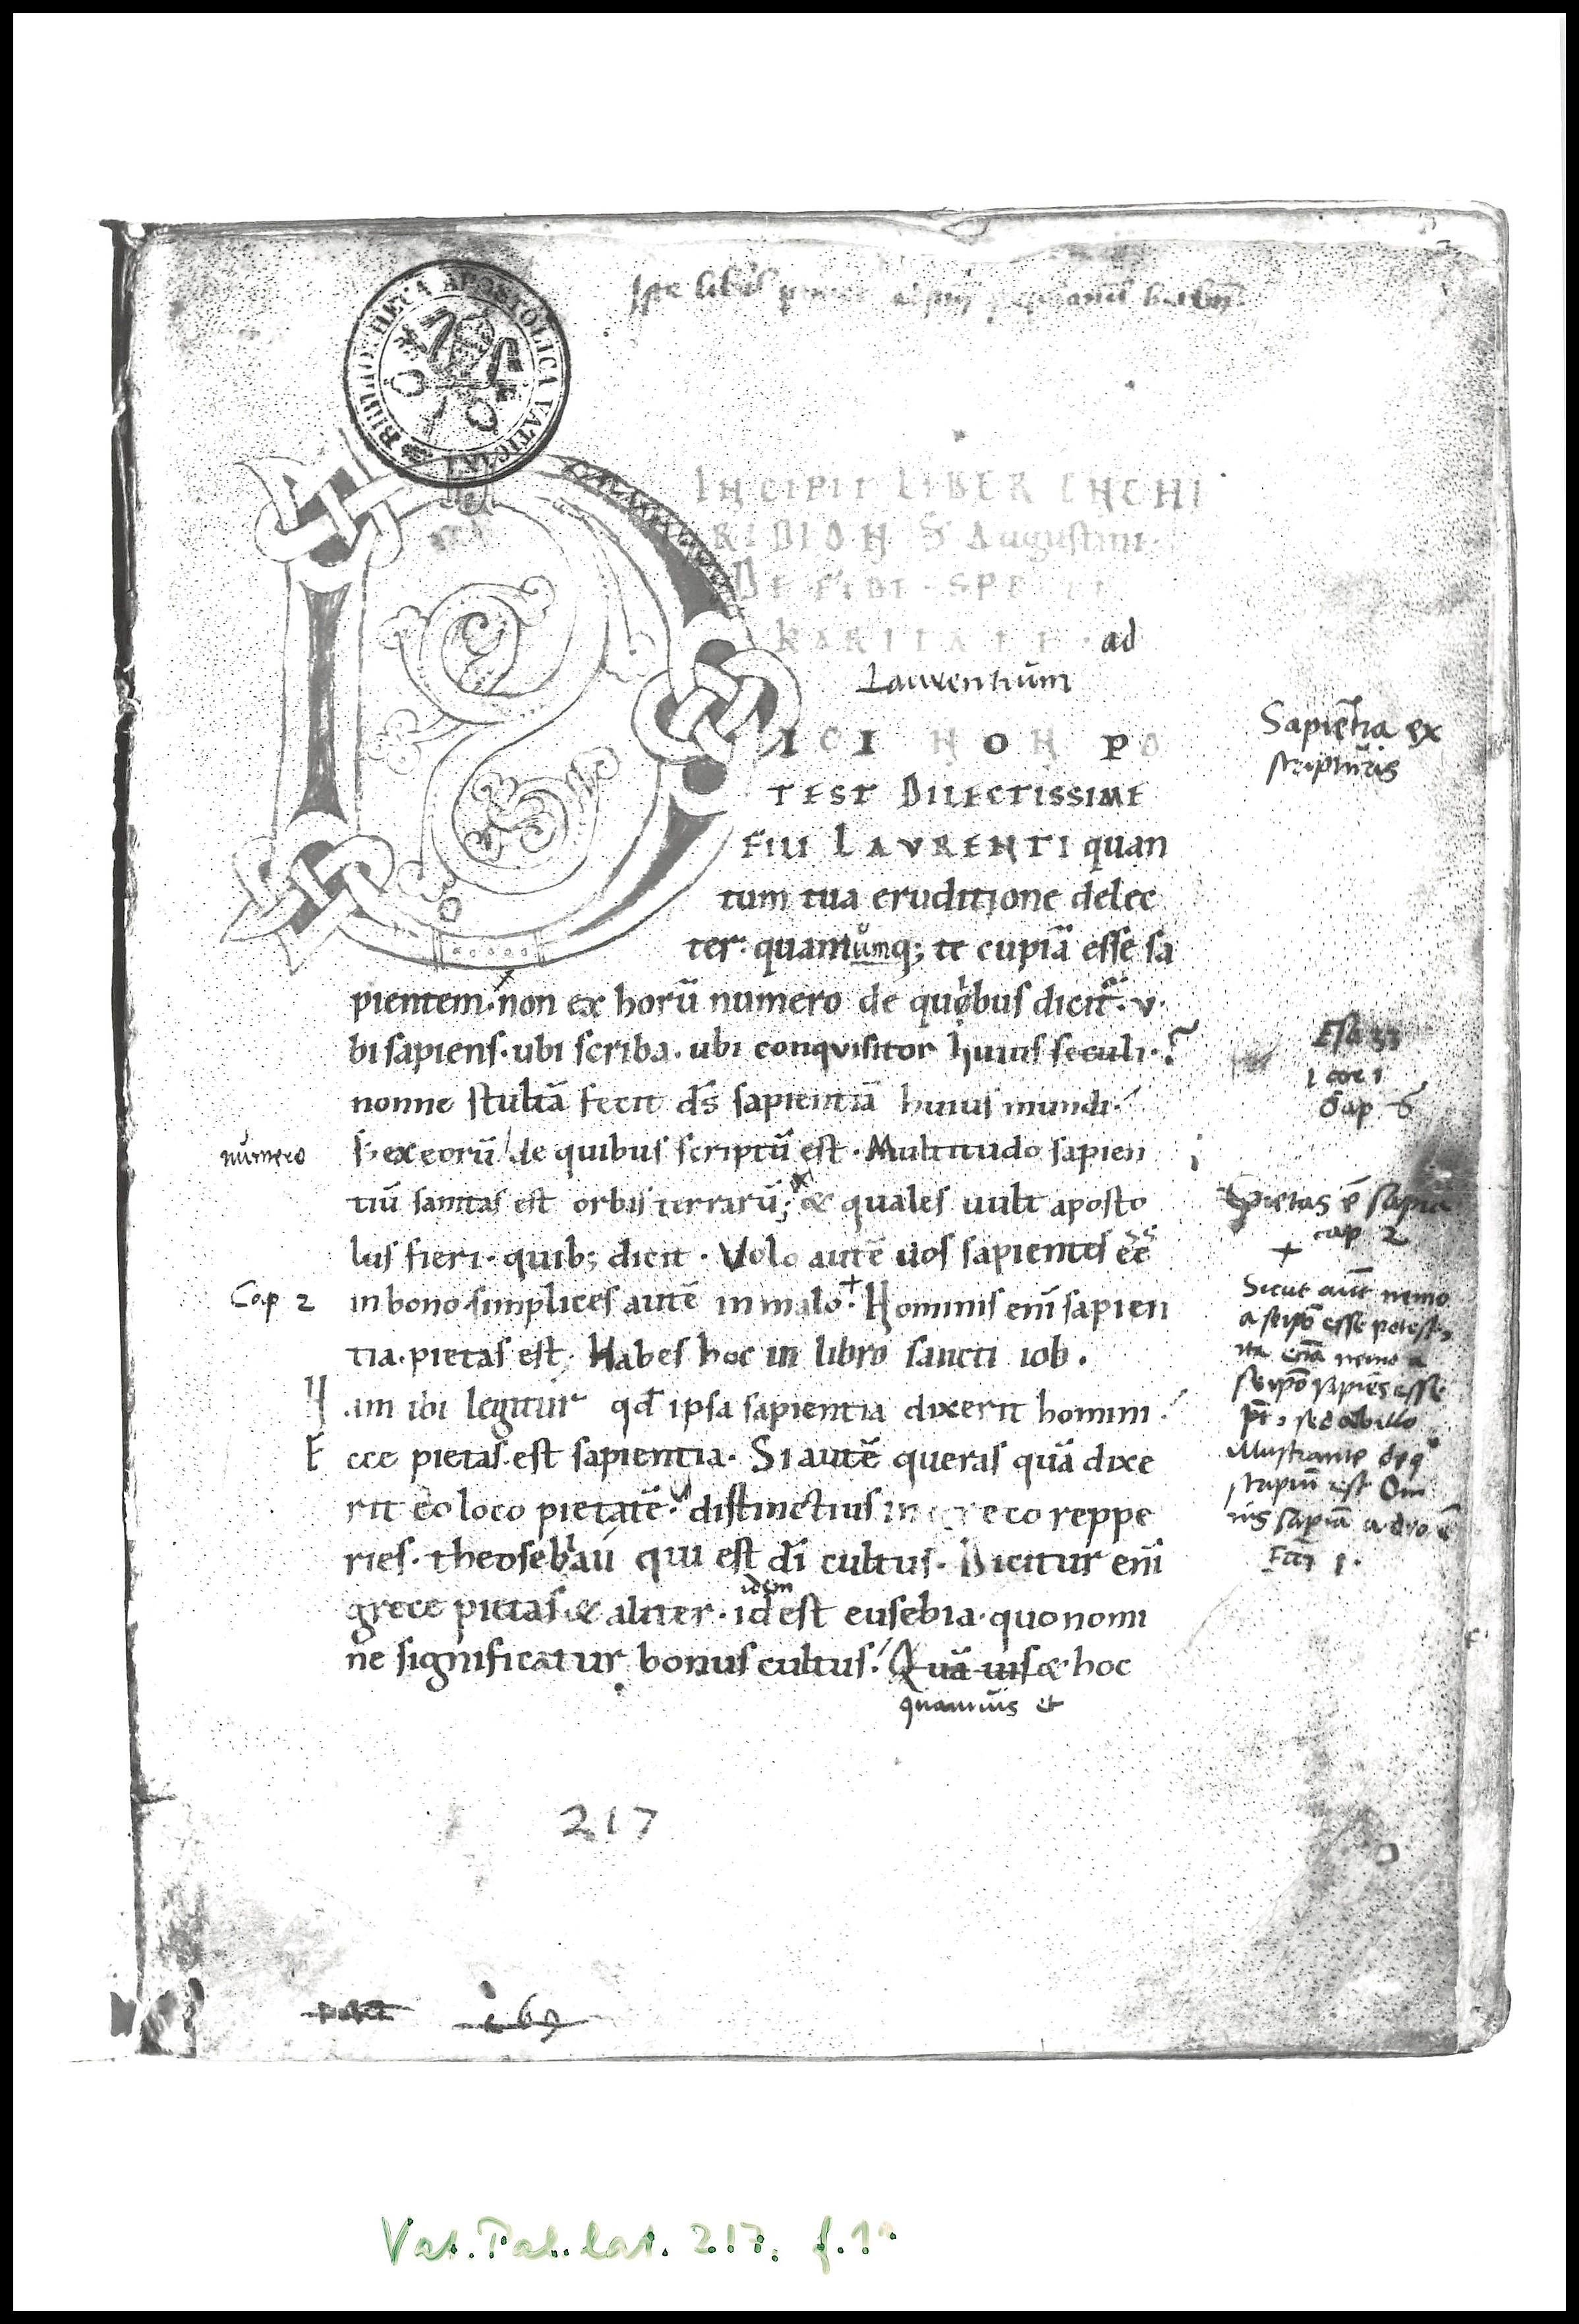 Iste liber
BIBLIOTHECA APOSTOLICA VATICANA
INCIPIT LIBER ENCHI
RIDION S̄ Augustini.
DE FIDE · SPE ET
KARITATE · ad
Laurentium
DICI NON PO
TEST DILECTISSIME
FILI LAVRENTI quan
tum tua eruditione delec
ter. quantumq; te cupiā esse sa
pientem. non ex horū numero de quibus dicit᷑. v
bi sapiens. ubi scriba. ubi conquisitor huius seculi.
nonne stultā fecit d̄s sapientiā huius mundi.
numero
s; ex eorū de quibus scriptū est. Multitudo sapien
tiū sanitas est orbis terrarū; & quales uult aposto
lus fieri. quib; dicit. Volo autē uos sapientes ēē
Cap 2
in bono. simplices autē in malo. Hominis eni̅ sapien
tia. pietas est. Habes hoc in libro sancti iob.
Nam ibi legitur qd̄ ipsa sapientia dixerit homini.
Ecce pietas est sapientia. Si autē queras quā dixe
rit eo loco pietatē. distinctius in greco reppe
ries. theosebian qui est d̄i cultus. Dicitur eni̅
grece pietas & aliter. id est eusebia. quo nomi
idem
ne significatur bonus cultus. Quā uis & hoc
quamuis et
Sapientia ex
scripturis
Esa 33
1 cor 1
Sap 6
Pietas ē sapiā
cap 2
+
Sicut aut̄ nemo
a seipō esse potest,
ita etiā nemo a
seipō sapiēs esse
pt, sed ab illo
illustrante de q°
scriptū est Om
nis sapiā a deo ē
Eccī 1.
217
269
Vat. Pal. lat. 217, f. 1r